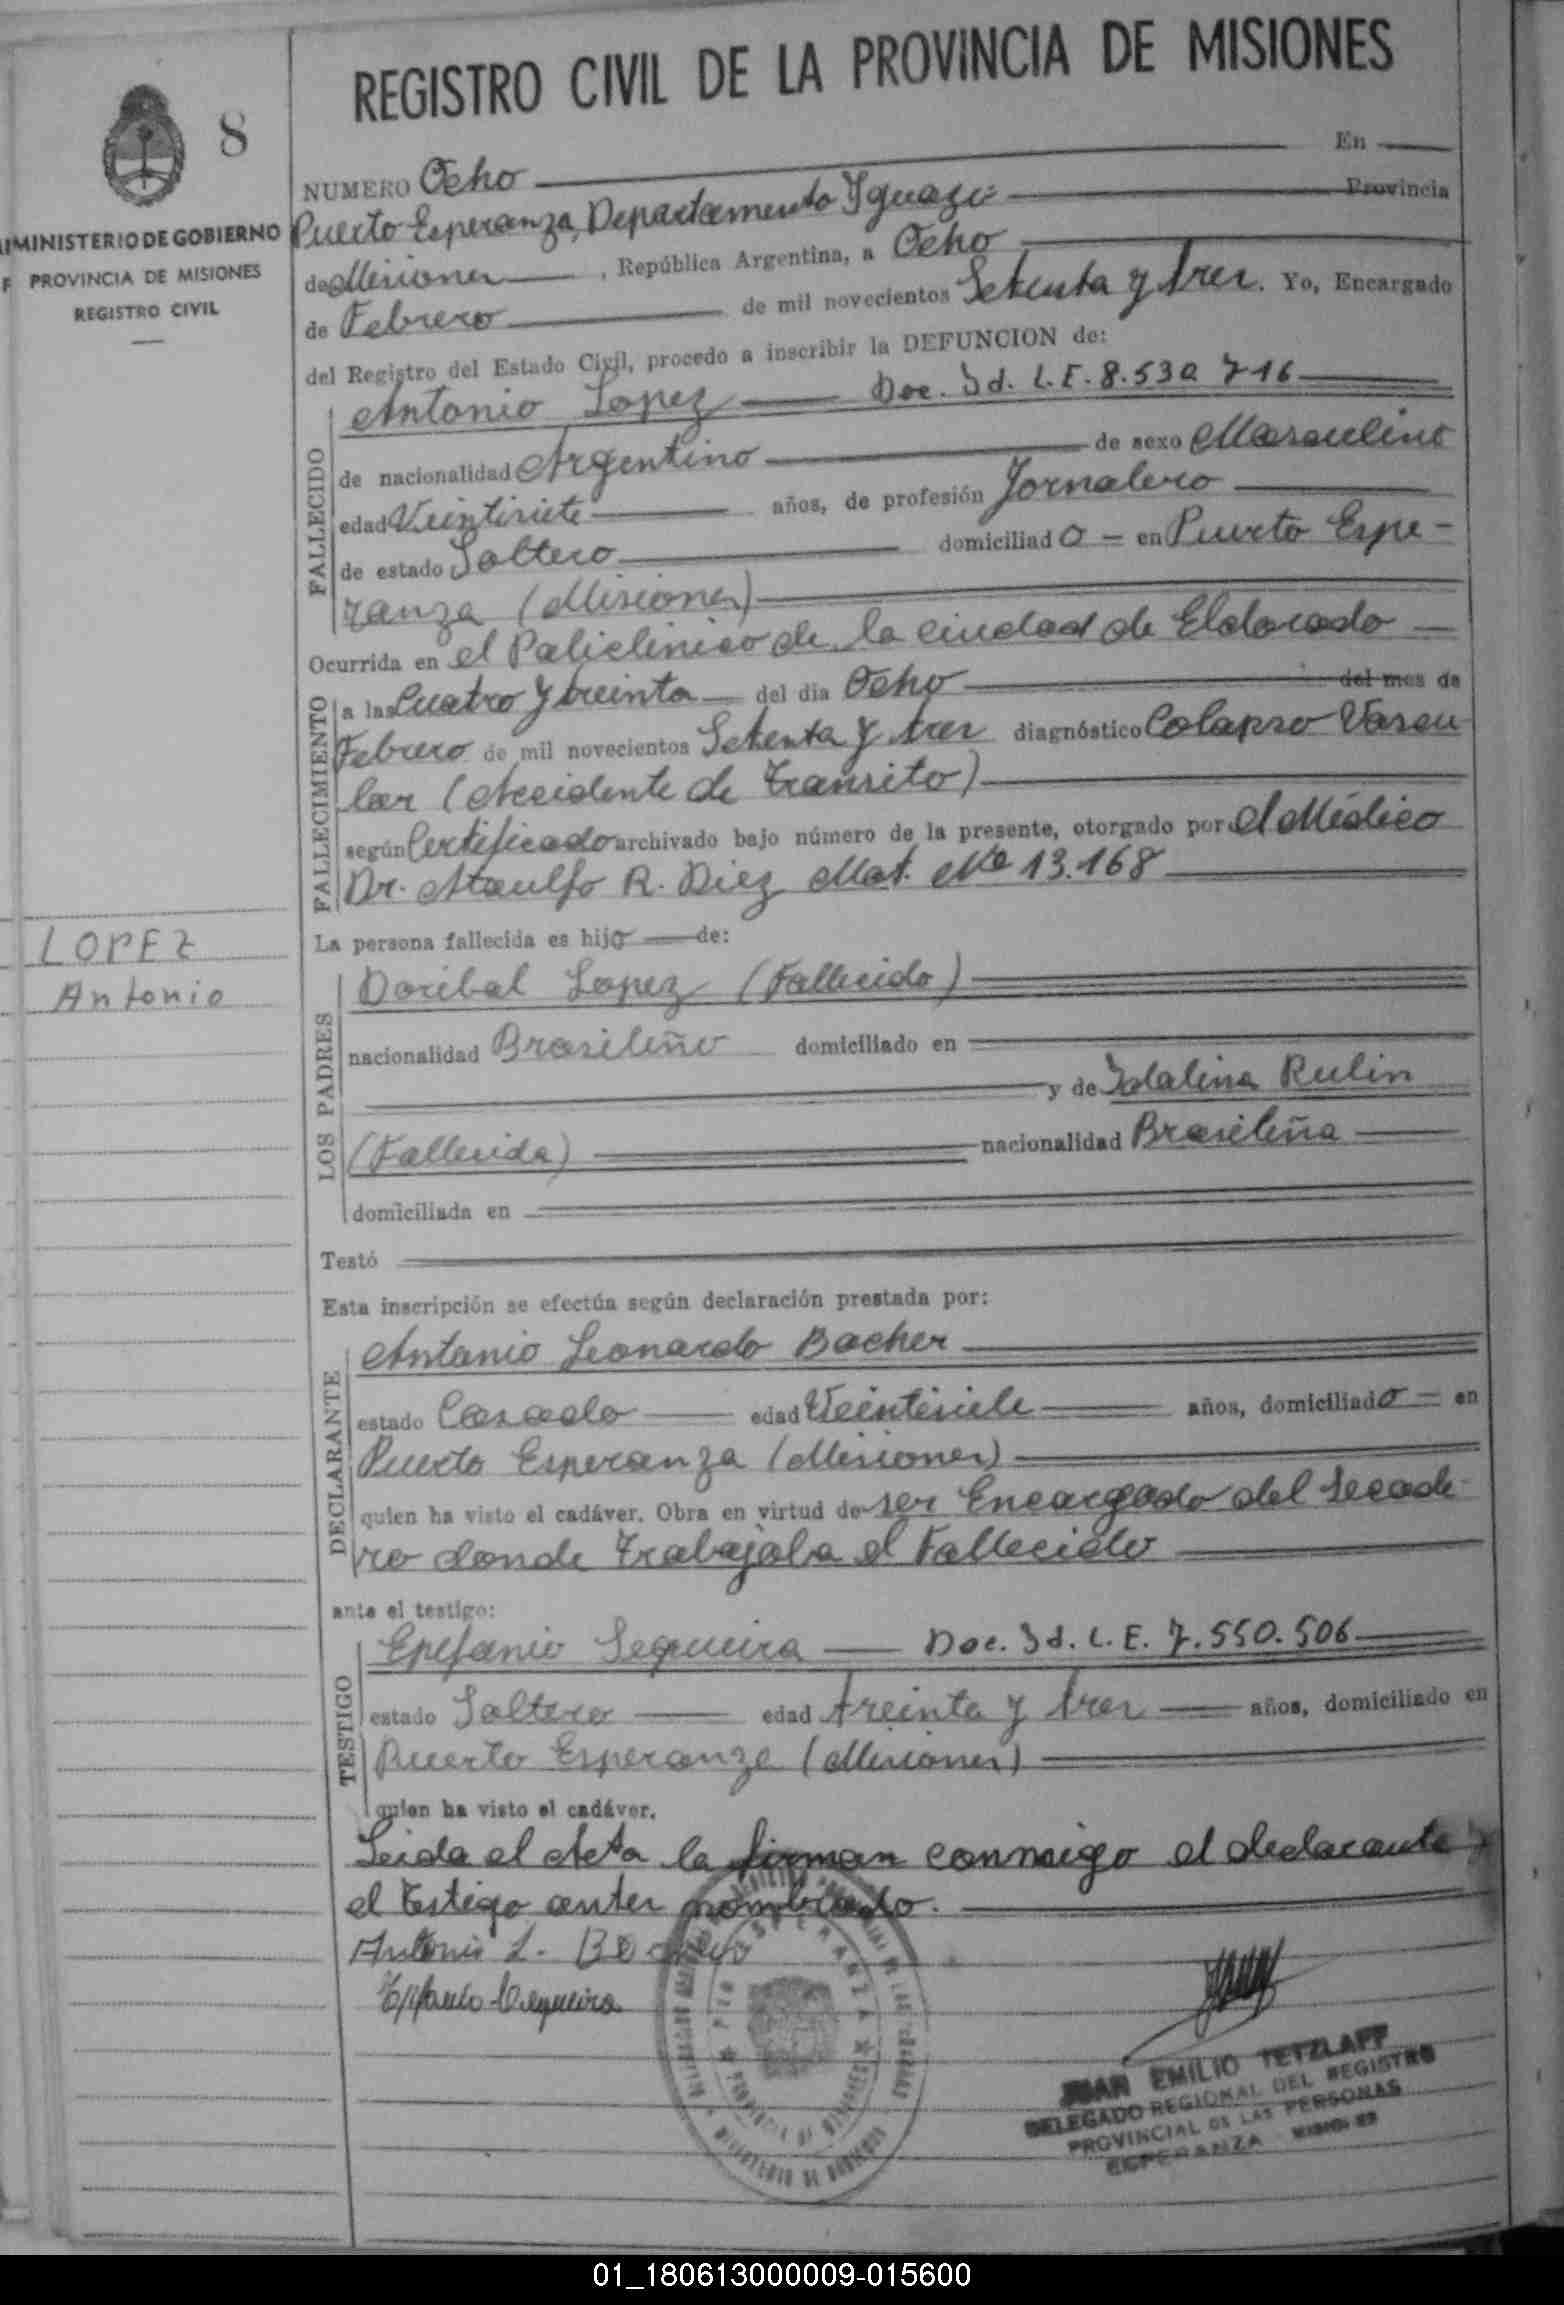 REGISTRO CIVIL DE LA PROVINCIA DE MISIONES
8
MINISTERIO DE GOBIERNO
PROVINCIA DE MISIONES
REGISTRO CIVIL
NUMERO Ocho En
Puerto Esperanza, Departamento Yguazú Provincia
de Misiones , República Argentina, a Ocho
de Febrero de mil novecientos Setenta y tres. Yo, Encargado
del Registro del Estado Civil, procedo a inscribir la DEFUNCION de:
FALLECIDO
Antonio Lopez Doc. Id. L.E. 8.530 716
de nacionalidad Argentino de sexo Masculino
edad Veintisiete años, de profesión Jornalero
de estado Soltero domiciliado en Puerto Espe-
ranza (Misiones)
Ocurrida en el Policlinico de la ciudad de Eldorado
FALLECIMIENTO
a las Cuatro y treinta del dia Ocho del mes de
Febrero de mil novecientos Setenta y tres diagnóstico Colapso Vascu
lar (Accidente de Transito)
según Certificado archivado bajo número de la presente, otorgado por el Médico
Dr. Ataulfo R. Diez Mat. Nº 13.168
LOPEZ
Antonio
La persona fallecida es hijo de:
LOS PADRES
Doribal Lopez (Fallecido)
nacionalidad Brasileño domiciliado en
y de Idalina Rulin
(Fallecida) nacionalidad Brasileña
domiciliada en
Testó
Esta inscripción se efectúa según declaración prestada por:
DECLARANTE
Antonio Leonardo Bacher
estado Casado edad Veintisiete años, domiciliado en
Puerto Esperanza (Misiones)
quien ha visto el cadáver. Obra en virtud de ser Encargado del Secade-
ro donde Trabajaba el Fallecido
ante el testigo:
TESTIGO
Epefanio Sequeira Doc. Id. L.E. 7.550.506
estado Soltero edad treinta y tres años, domiciliado en
Puerto Esperanza (Misiones)
quien ha visto el cadáver.
Leida el Acta la firman conmigo el declarante y
el Testigo antes nombrado.
Antonio L.
Epifanio Sequeira
JUAN EMILIO TETZLAFF
DELEGADO REGIONAL DEL REGISTRO
PROVINCIAL DE LAS PERSONAS
ESPERANZA MISIONES
01_180613000009-015600